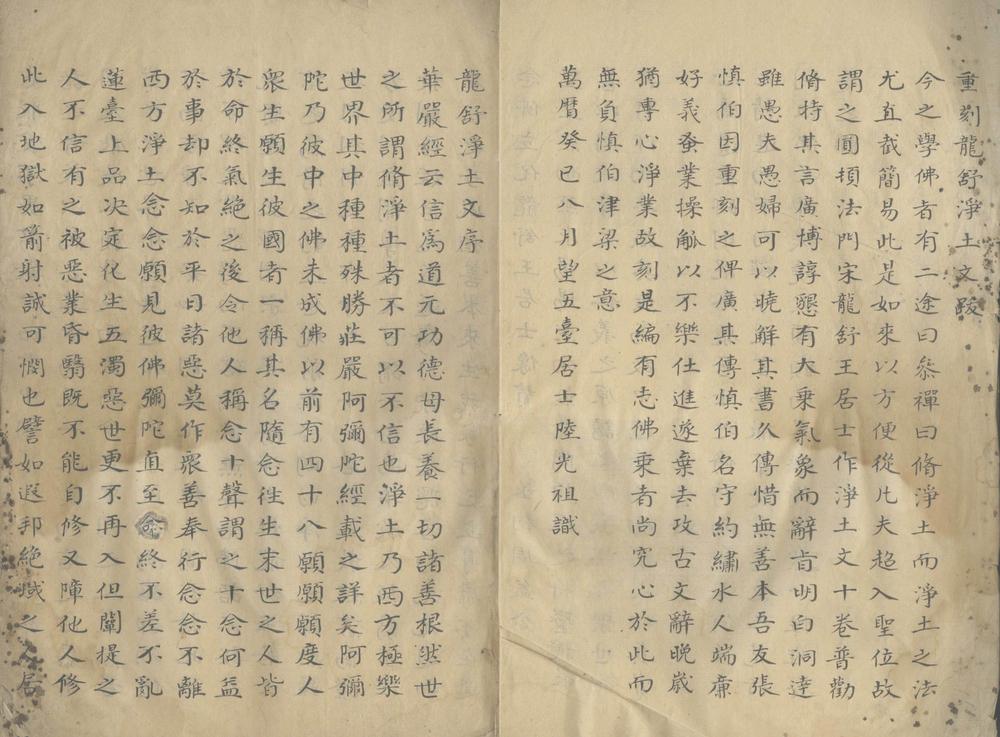 重刻龍舒淨土文跋
今之學佛者有二途曰叅禪曰脩淨土而淨土之法
尤直截簡易此是如來以方便從凢夫超入聖位故
謂之圓頓法門宋龍舒王居士作淨土文十卷普勸
脩持其言廣博諄懇有大乗氣象而辭㫖明白洞達
雖愚夫愚婦可以曉解其書久傳惜無善本吾友張
慎伯因重刻之俾廣其傳慎伯名守約繡水人端亷
好義蚤業操觚以不樂仕進遂棄去攻古文辭晚歲
猶專心淨業故刻是編有志佛乗者尚究心於此而
無負慎伯津梁之意
萬曆癸巳八月望五臺居士陸光祖識
龍舒淨土文序
華嚴經云信爲道元功德母長養一切諸善根然世
之所謂脩淨土者不可以不信也淨土乃西方極樂
世界其中種種殊勝莊嚴阿彌陀經載之詳矣阿彌
陀乃彼中之佛未成佛以前有四十八願願願度人
衆生願生彼國者一稱其名隨念徃生末世之人皆
於命終氣絶之後令他人稱念十聲謂之十念何益
於事却不知於平日諸惡莫作衆善奉行念念不離
西方淨土念念願見彼佛彌陀直至命終不差不亂
蓮臺上品決定化生五濁惡世更不再入但闡提之
人不信有之被惡業昏翳既不能自修又障他人修
此入地獄如箭射誠可憫也譬如遐邦絶域之人居